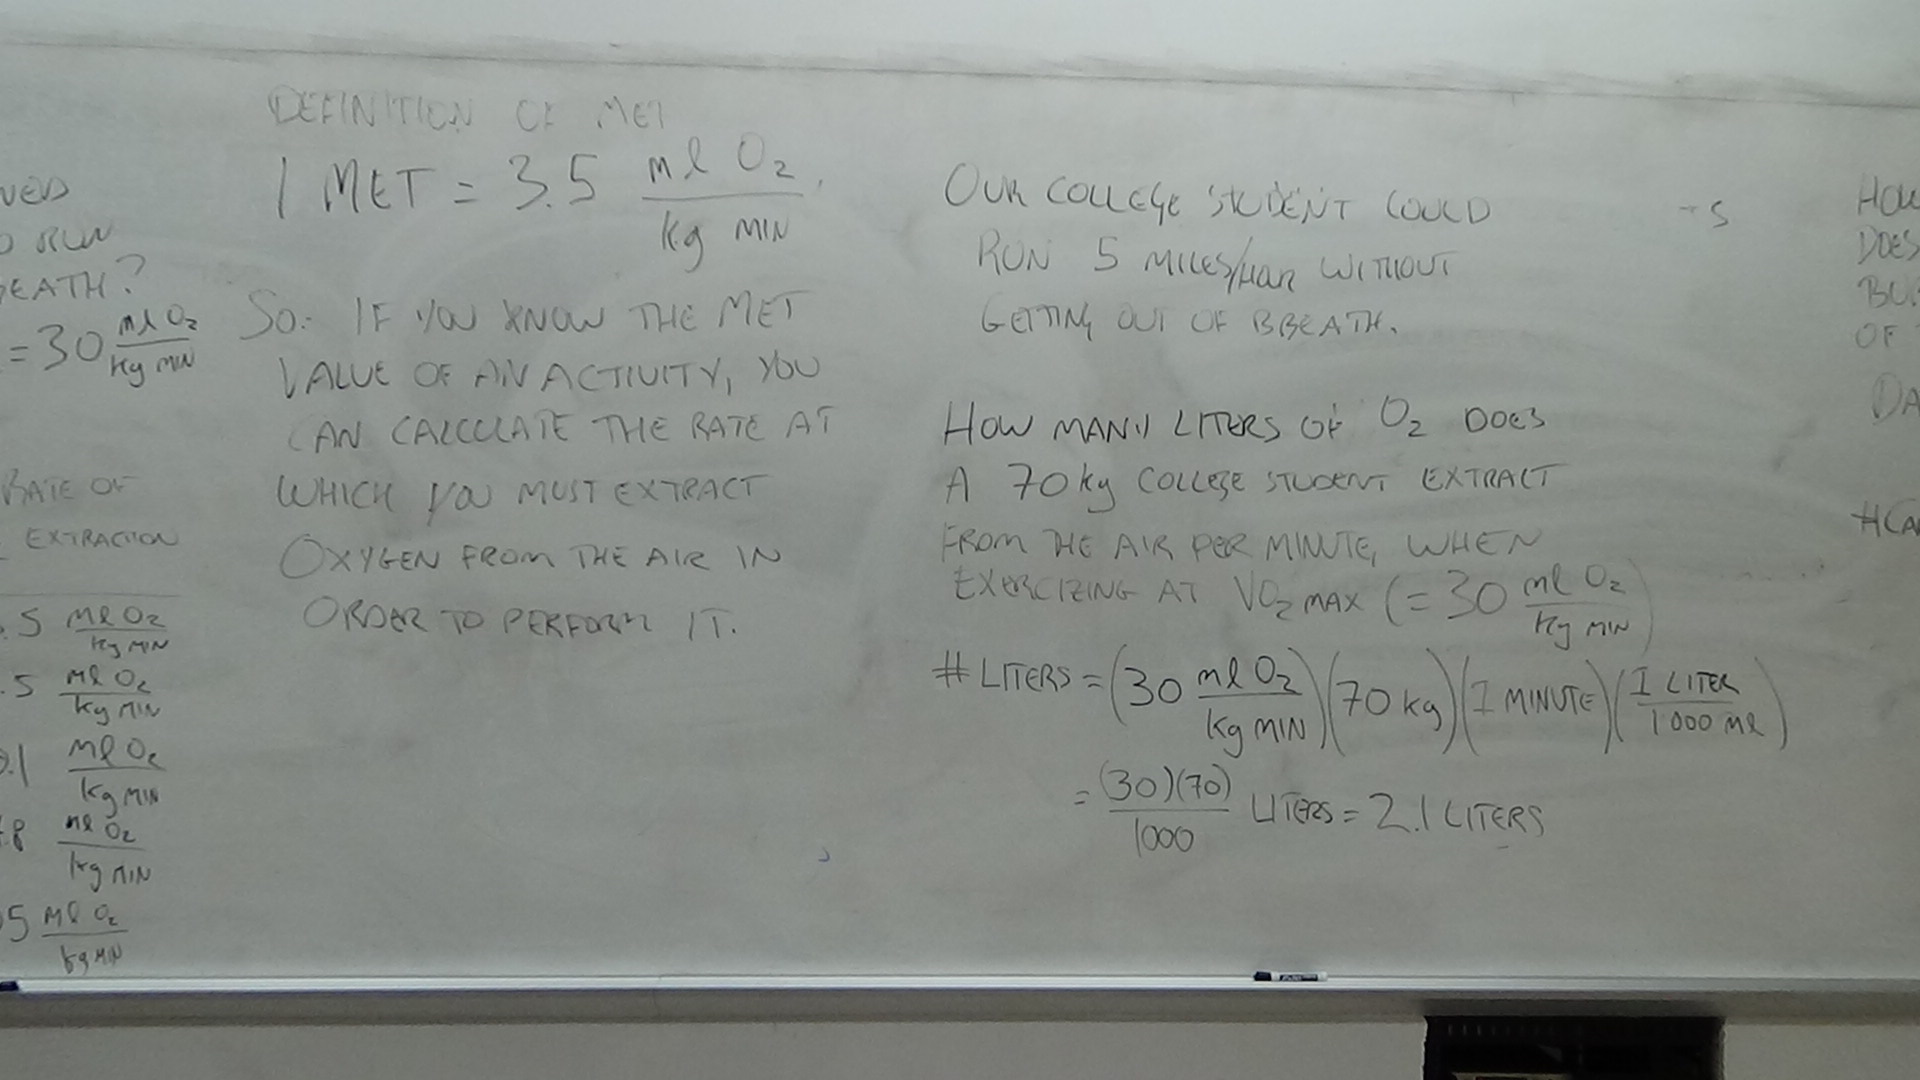 VED
RUN
EATH?
= 30 ml O2
kg MIN
RATE OF
EXTRACTION
.5 ml O2
kg MIN
.5 ml O2
kg MIN
.1 ml O2
kg MIN
.8 ml O2
kg MIN
5 ml O2
kg MIN
DEFINITION OF MET
1 MET = 3.5 ml O2
kg MIN
SO: IF YOU KNOW THE MET
VALUE OF AN ACTIVITY, YOU
CAN CALCULATE THE RATE AT
WHICH YOU MUST EXTRACT
OXYGEN FROM THE AIR IN
ORDER TO PERFORM IT.
OUR COLLEGE STUDENT COULD
RUN 5 MILES/HOUR WITHOUT
GETTING OUT OF BBEATH.
HOW MANY LITERS OF O2 DOES
A 70kg COLLEGE STUDENT EXTRACT
FROM THE AIR PER MINUTE, WHEN
EXERCIZING AT VO2 MAX (= 30 ml O2
kg MIN)
# LITERS = (30 ml O2 / kg MIN)(70 kg)(1 MINUTE)(1 LITER / 1000 ml)
= (30)(70) / 1000 LITERS = 2.1 LITERS
S
HOW
DOES
BU
OF
DA